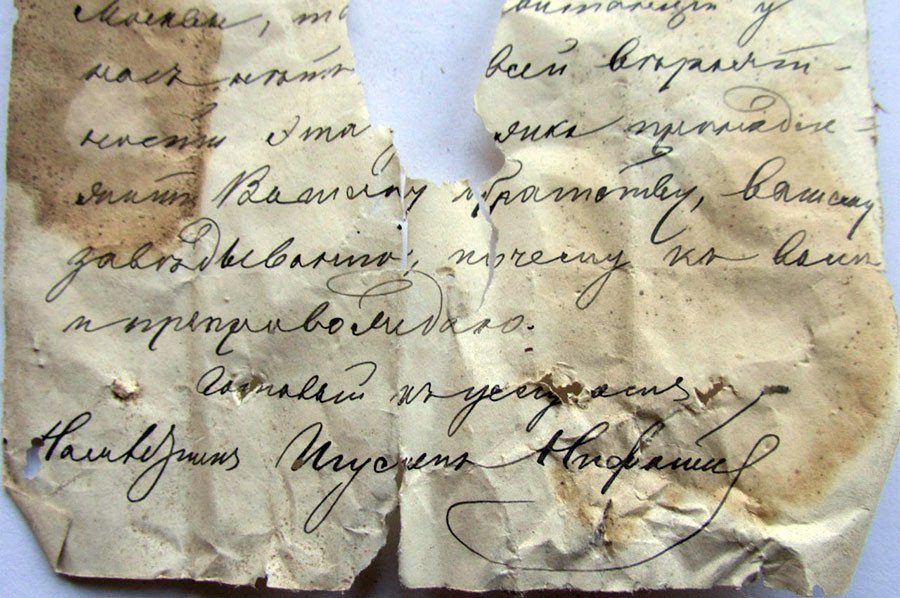 Москвы, у
насъ нѣтъ всей вѣроят-
ности эта принадле-
житъ Вашему братству, вашему
завѣдыванію, почему къ вамъ
и препровождаю.
Готовый къ услугамъ
Игуменъ